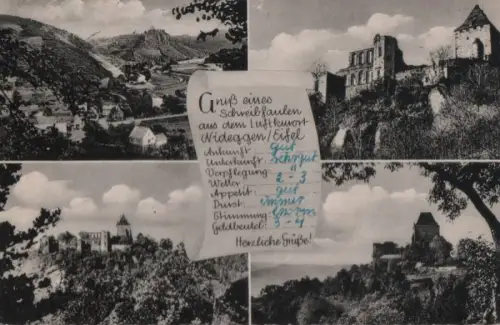 Gruß eines
Schreibfaulen
aus dem Luftkurort
Nideggen/Eifel
Ankunft: gut
Unterkunft: sehr gut
Verpflegung: "
Wetter: 2-3
Appetit: gut
Durst: immer
Stimmung:
Geldbeutel: 3-4
Herzliche Grüße!